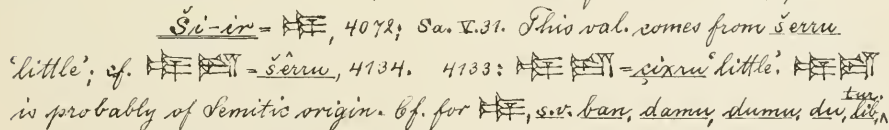 Ši-ir = , 4072; Sa. V. 31. This val. comes from šerru
'little'; cf. = šêrru, 4134. 4133: = çixru 'little'.
is probably of Semitic origin. Cf. for , s.v. ban, damu, dumu, du, lib, tur.